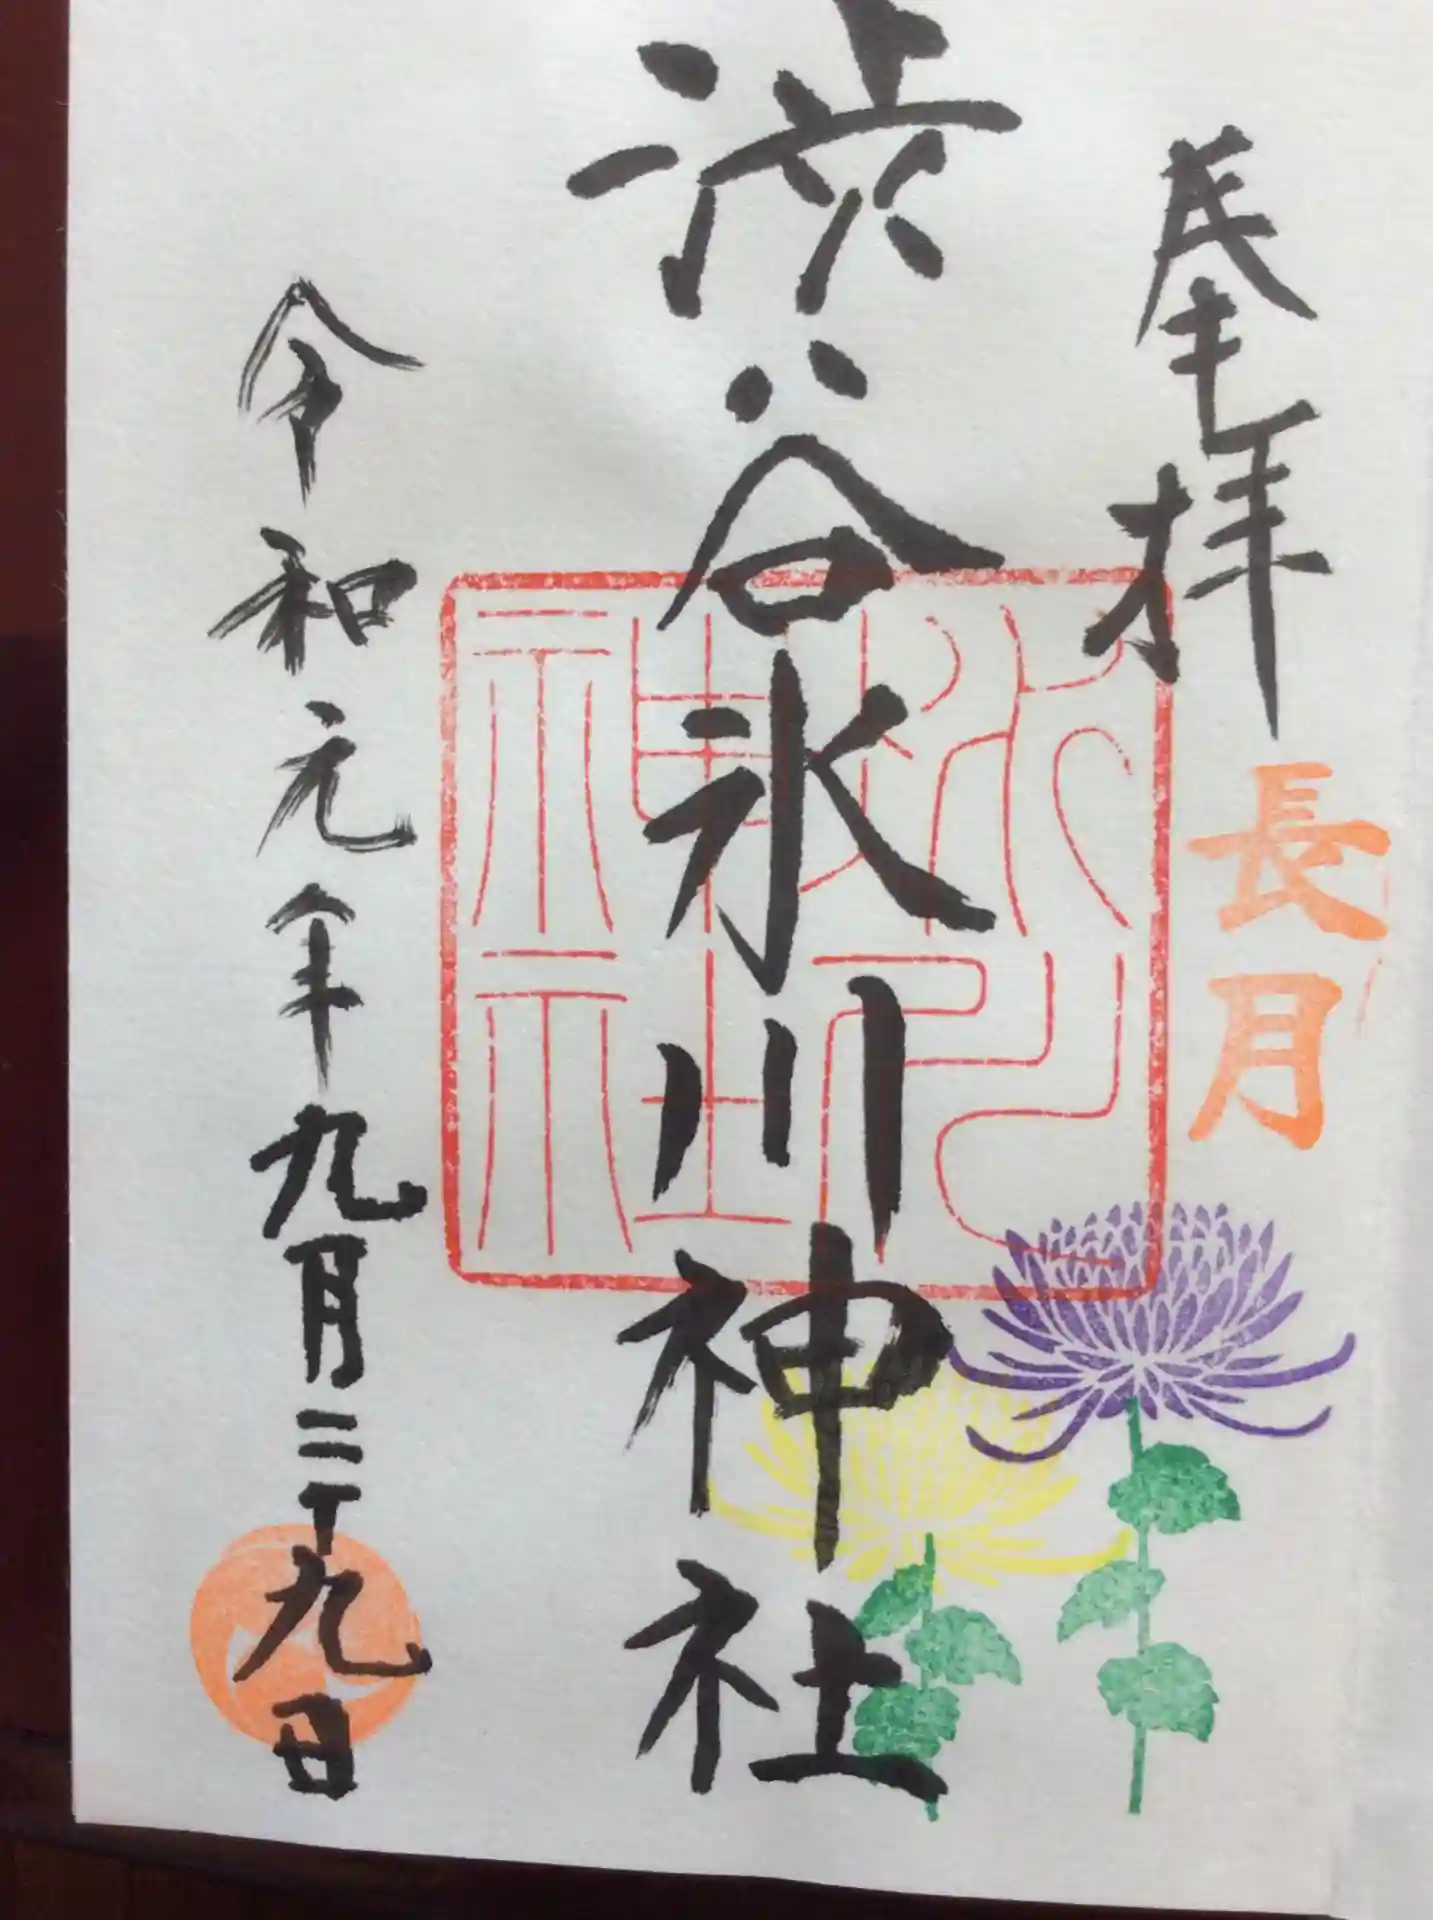 奉拝
長月
渋谷氷川神社
氷川
神社
令和元年九月二十九日